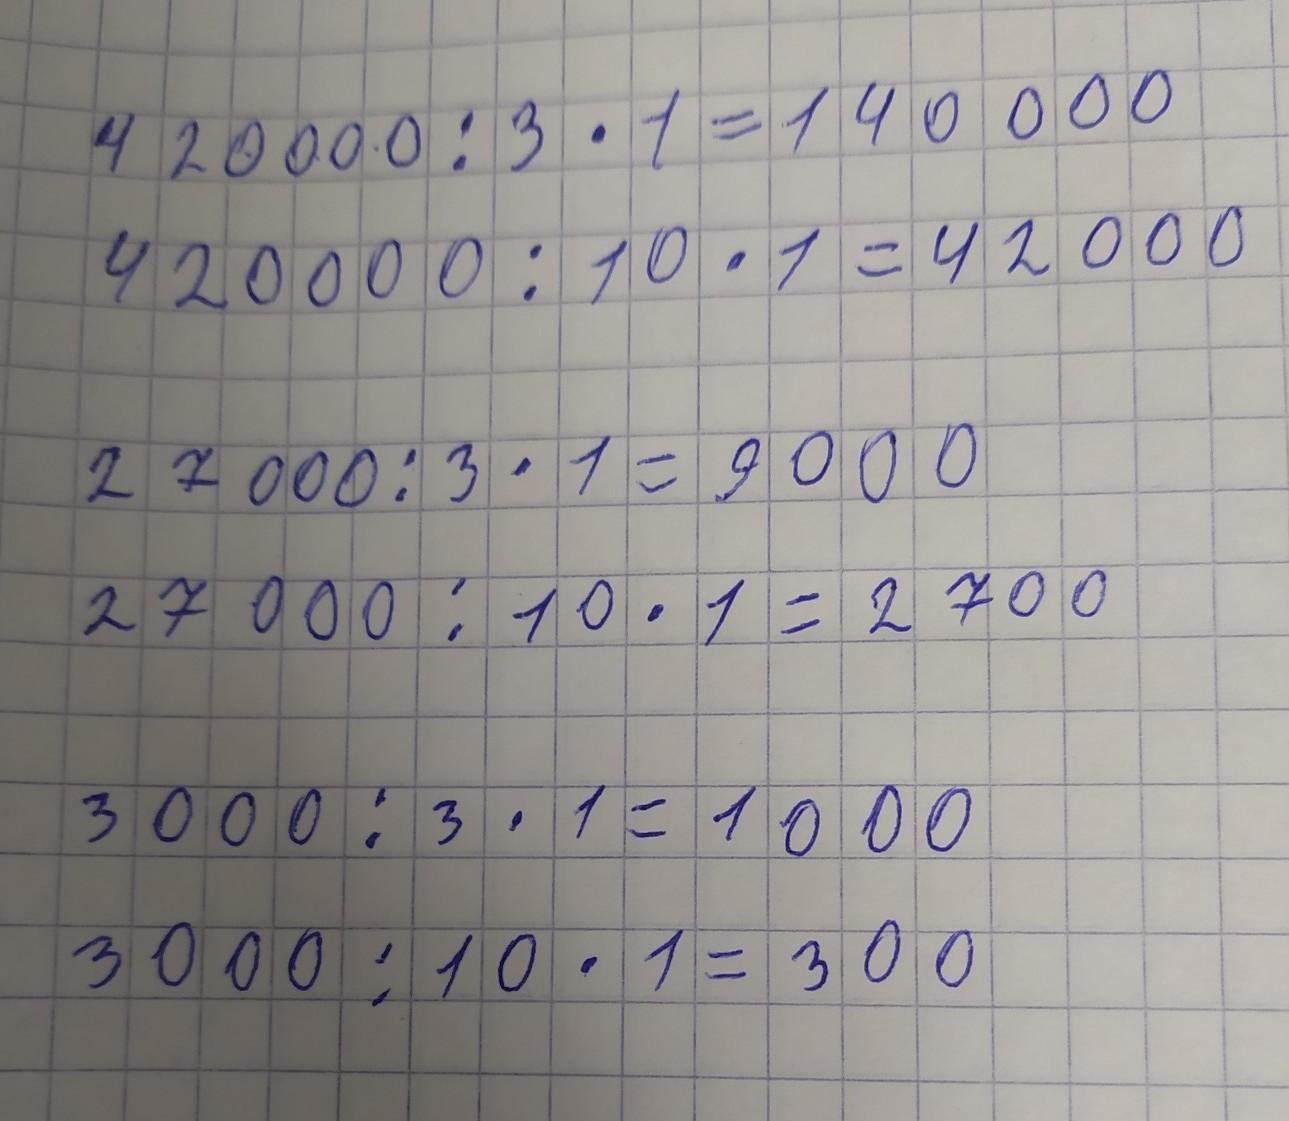 420000:3·1=140000
420000:10·1=42000
27000:3·1=9000
27000:10·1=2700
3000:3·1=1000
3000:10·1=300